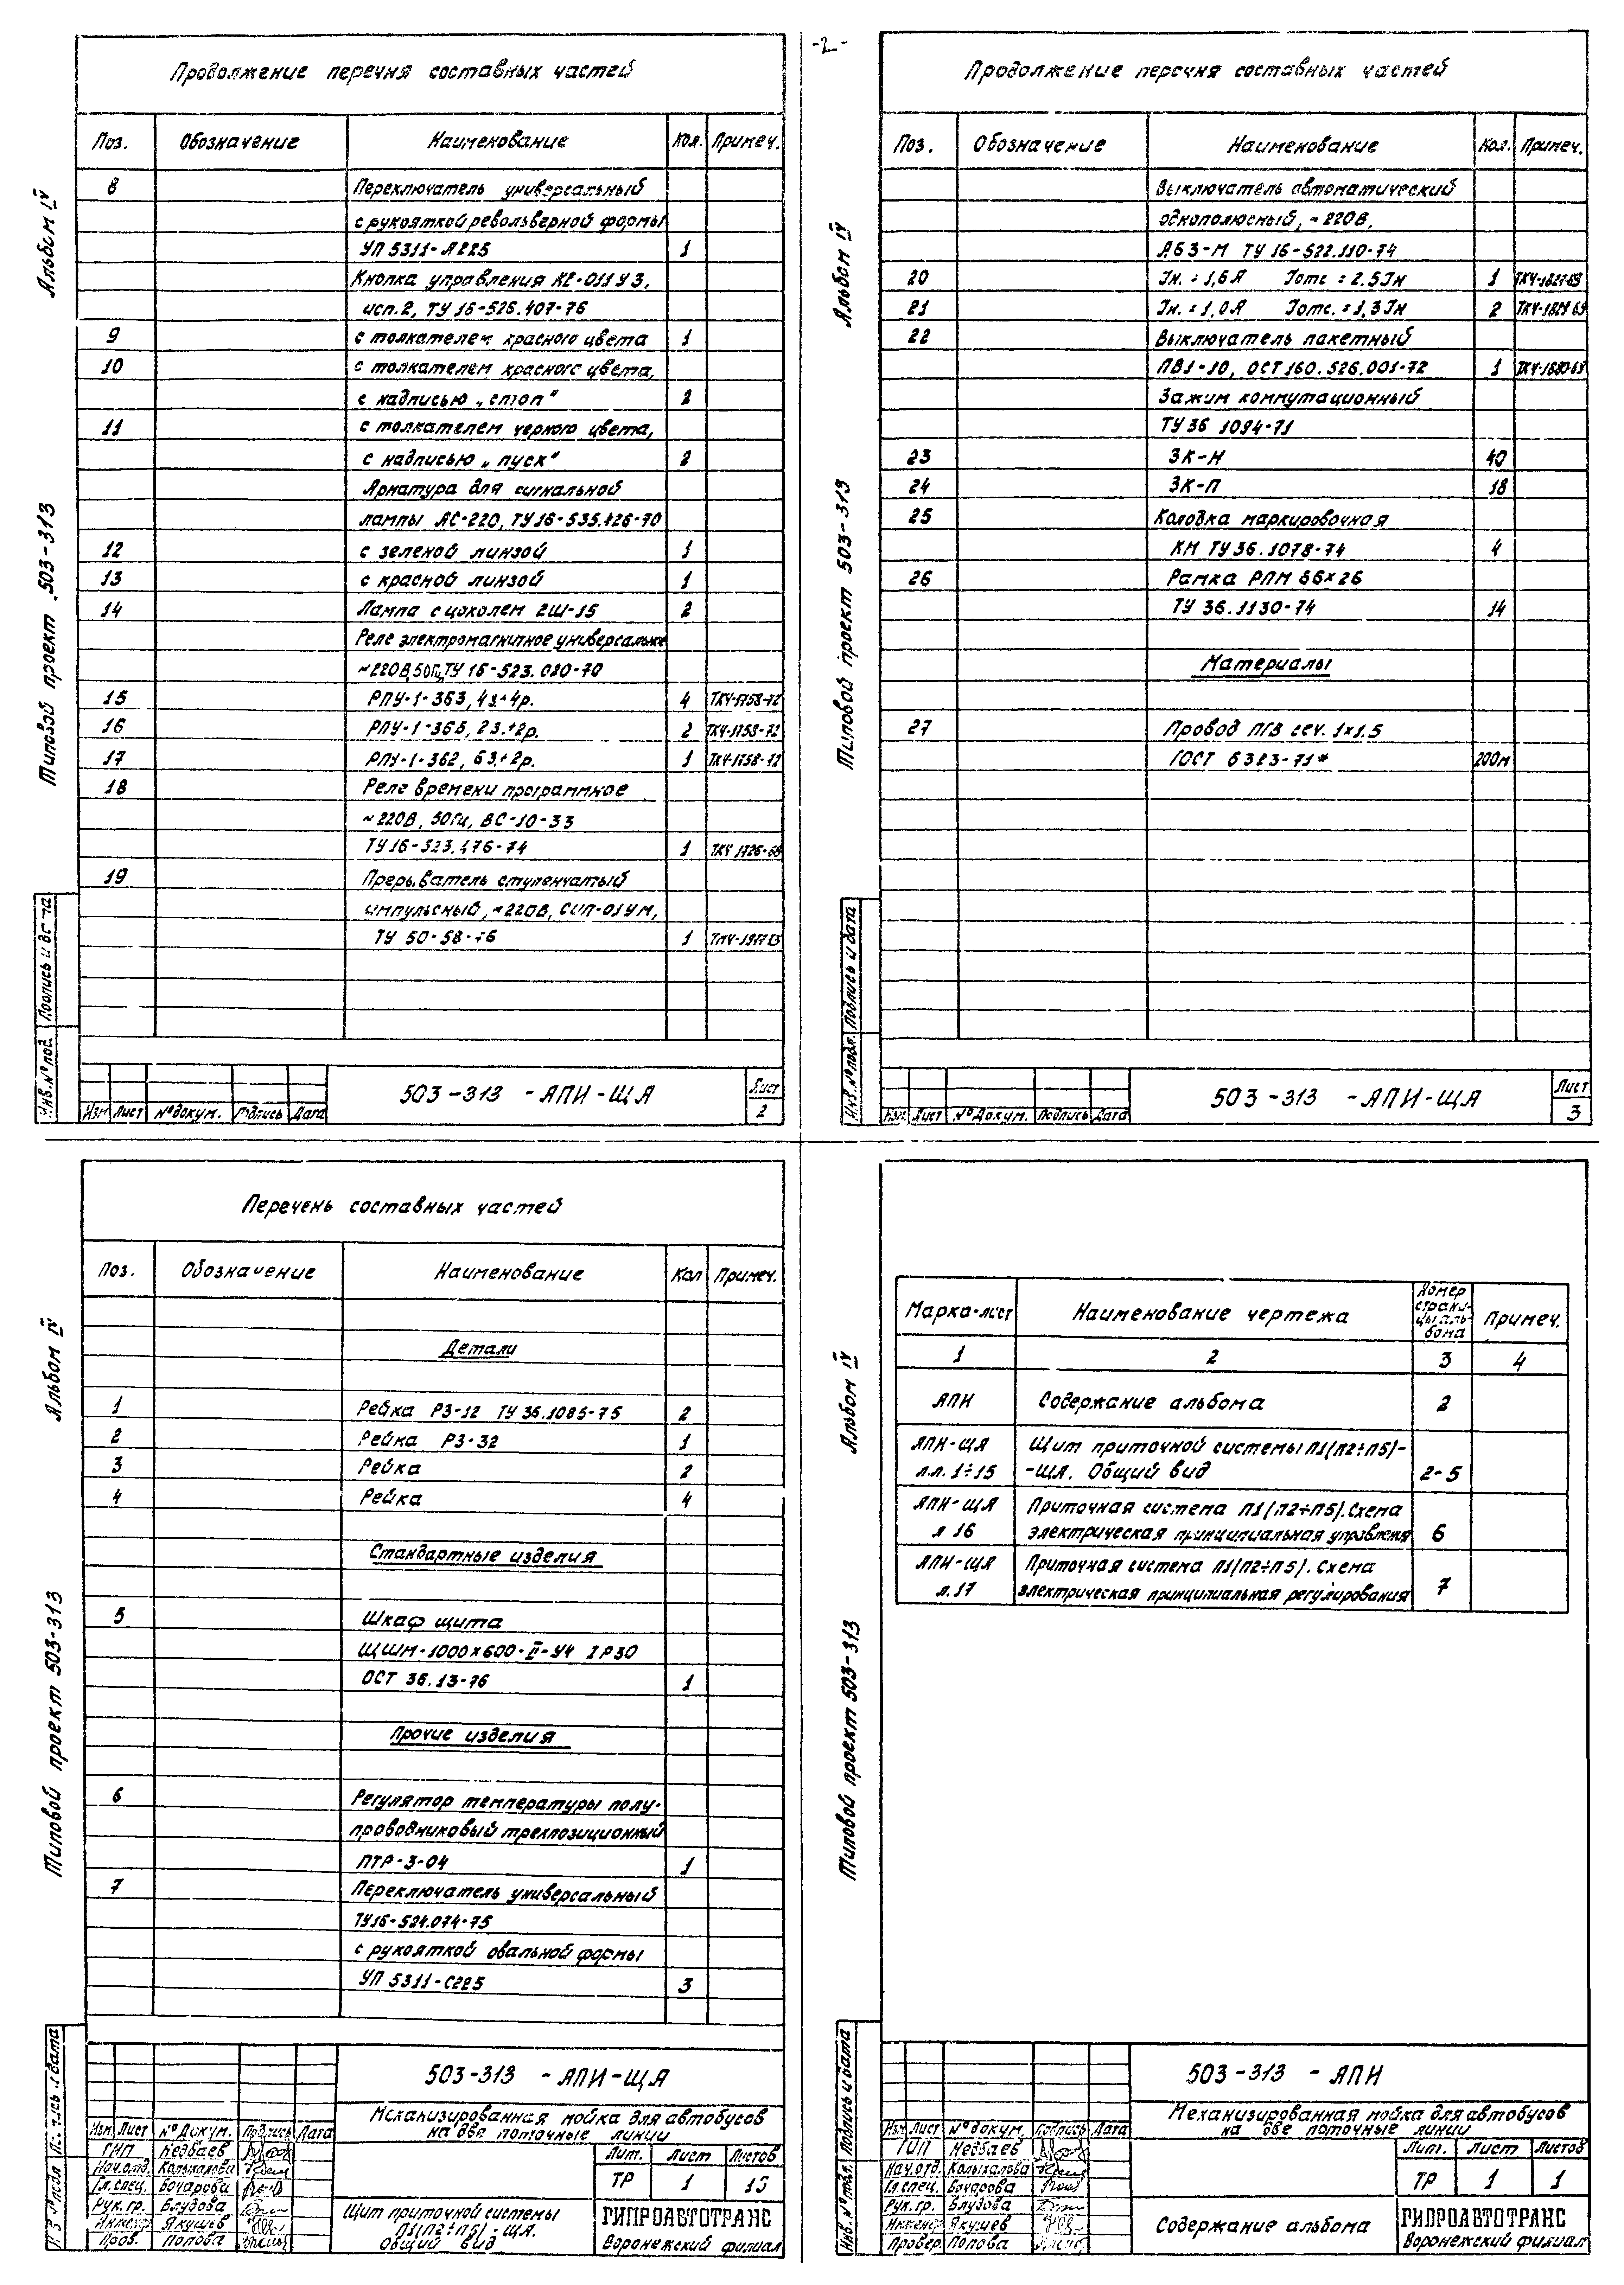 -2-
Продолжение перечня составных частей
Поз. Обозначение Наименование Кол. Примеч.
8 Переключатель универсальный
с рукояткой револьверной формы
УП 5311-А225 1
Кнопка управления КЕ-011У3,
исп.2, ТУ 16-526.407-76
9 с толкателем красного цвета 1
10 с толкателем красного цвета,
с надписью „стоп" 2
11 с толкателем черного цвета,
с надписью „пуск" 2
Арматура для сигнальной
лампы АС-220, ТУ16-535.426-70
12 с зеленой линзой 1
13 с красной линзой 1
14 Лампа с цоколем 2Ш-15 2
Реле электромагнитное универсальное
~220В,50Гц,ТУ 16-523.020-70
15 РПУ-1-363, 4з+4р. 4 ТКЧ-1758-72
16 РПУ-1-365, 2з.+2р. 2 ТКЧ-1758-72
17 РПУ-1-362, 6з.+2р. 1 ТКЧ-1758-72
18 Реле времени программное
~220В, 50Гц, ВС-10-33
ТУ16-523.476-74 1 ТКЧ 1726-68
19 Прерыватель ступенчатый
импульсный, ~220В, СИП-01УМ,
ТУ 50-58-76 1
Альбом IV
Типовой проект 503-313
Подпись и дата
Инв.№ под.
Изм Лист № докум. Подпись Дата
503-313 -АПИ-ЩА
Лист
2
Продолжение перечня составных частей
Поз. Обозначение Наименование Кол. Примеч.
Выключатель автоматический
однополюсный, ~220В,
А63-М ТУ 16-522.110-74
20 Iн. = 1,6А Iотс = 2.5Iн 1
21 Iн. = 1,0А Iотс. = 1,3Iн 2 ТКЧ-1829 69
22 Выключатель пакетный
ПВ1-10, ОСТ160.526.001-72 1
Зажим коммутационный
ТУ36 1094-71
23 ЗК-Н 40
24 ЗК-П 18
25 Колодка маркировочная
КМ ТУ36.1078-74 4
26 Рамка РПМ 66×26
ТУ 36.1130-74 14
Материалы
27 Провод ПГВ сеч. 1×1.5
ГОСТ 6323-71* 200м
Альбом IV
Типовой проект 503-313
Подпись и дата
Инв.№ подл.
Изм. Лист № Докум. Подпись Дата
503-313 -АПИ-ЩА
Лист
3
Перечень составных частей
Поз. Обозначение Наименование Кол Примеч.
Детали
1 Рейка РЗ-12 ТУ 36.1085-75 2
2 Рейка РЗ-32 1
3 Рейка 2
4 Рейка 4
Стандартные изделия
5 Шкаф щита
ЩШМ-1000×600-II-У4 IP30
ОСТ 36.13-76 1
Прочие изделия
6 Регулятор температуры полу-
проводниковый трехпозиционный
ПТР-3-04 1
7 Переключатель универсальный
ТУ16-524.074-75
с рукояткой овальной формы
УП 5311-С225 3
Альбом IV
Типовой проект 503-313
503-313 -АПИ-ЩА
Механизированная мойка для автобусов
на две поточные линии
Изм. Лист № Докум. Подпись Дата
ГИП Недбаев
Нач.отд. Колыхалова
Гл.спец. Бочарова
Рук.гр. Блудова
Инженер Якушев
Пров. Попова
Лит. Лист Листов
ТР 1 15
Щит приточной системы
П1(П2÷П5)-ЩА.
Общий вид
ГИПРОАВТОТРАНС
Воронежский филиал
Марка-лист Наименование чертежа Номер страни-цы аль-бома Примеч.
1 2 3 4
АПИ Содержание альбома 2
АПИ-ЩА Щит приточной системы П1(П2÷П5)-
л.л. 1÷15 -ЩА. Общий вид 2-5
АПИ-ЩА Приточная система П1(П2÷П5).Схема
л 16 электрическая принципиальная управления 6
АПИ-ЩА Приточная система П1(П2÷П5). Схема
л.17 электрическая принципиальная регулирования 7
Альбом IV
Типовой проект 503-313
Подпись и дата
Инв.№ подл.
503-313 -АПИ
Механизированная мойка для автобусов
на две поточные линии
Изм Лист № докум. Подпись Дата
ГИП Недбаев
Нач.отд. Колыхалова
Гл.спец. Бочарова
Рук.гр. Блудова
Инженер Якушев
Провер. Попова
Лит. Лист Листов
ТР 1 1
Содержание альбома
ГИПРОАВТОТРАНС
Воронежский филиал